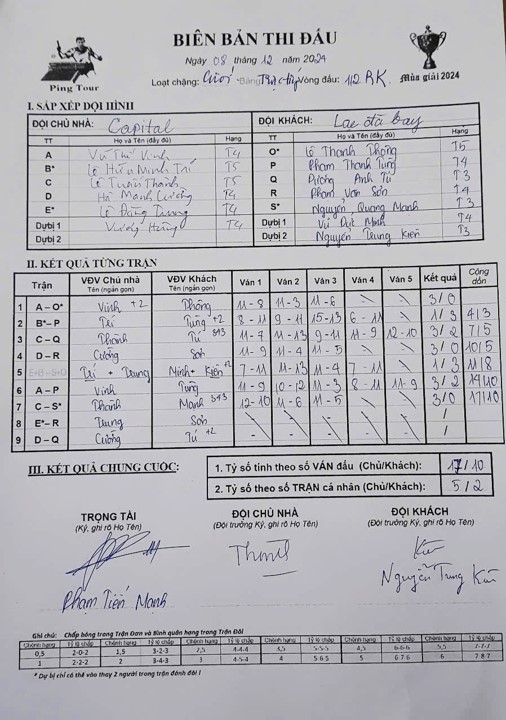 BIÊN BẢN THI ĐẤU
Ping Tour
Mùa giải 2024
Ngày 08 tháng 12 năm 2024
Loạt chặng: Bảng: Vòng đấu: 1/2 RK.
I. SẮP XẾP ĐỘI HÌNH
ĐỘI CHỦ NHÀ: Capital ĐỘI KHÁCH:
TT Họ và Tên (đầy đủ) Hạng TT Họ và Tên (đầy đủ) Hạng
A Vũ Thế Vinh T4 O* Lê Thanh Thông T5
B* Lê Hữu Minh Trí T5 P Phạm Thanh Tùng T4
C Lê Tuấn Thành T5 Q Dương Anh Tú T3
D Hà Mạnh Cường T4 R Phạm Văn Sơn T4
E* Lê Đăng Trung T4 S* Nguyễn Quang Mạnh T3
Dự bị 1 Vương Hùng T4 Dự bị 1 Vũ Đức Minh T4
Dự bị 2 Dự bị 2 Nguyễn Trung Kiên T3
II. KẾT QUẢ TỪNG TRẬN
Trận VĐV Chủ nhà Tên (ngắn gọn) VĐV Khách Tên (ngắn gọn) Ván 1 Ván 2 Ván 3 Ván 4 Ván 5 Kết quả Cộng dồn
1 A – O* Vinh +2 Thông 11-8 11-3 11-6 \ \ 3/0
2 B* – P Trí Tùng +2 8-11 9-11 15-13 6-11 \ 1/3 4/3
3 C – Q Thành Tú 11-7 11-13 9-11 11-9 12-10 3/2 7/5
4 D – R Cường Sơn 11-9 11-4 11-5 \ \ 3/0 10/5
5 Trí + Trung Minh + Kiên 7-11 11-13 11-4 7-11 \ 1/3 11/8
6 A – P Vinh Tùng 11-9 10-12 11-3 8-11 11-9 3/2 14/10
7 C – S* Thành Mạnh 12-10 11-6 11-5 \ \ 3/0 17/10
8 E* – R Trung Sơn - - - \ \ /
9 D – Q Cường Tú +2 - - - \ \ /
III. KẾT QUẢ CHUNG CUỘC:
1. Tỷ số tính theo số VÁN đấu (Chủ/Khách): 17/10
2. Tỷ số theo số TRẬN cá nhân (Chủ/Khách): 5/2
TRỌNG TÀI ĐỘI CHỦ NHÀ ĐỘI KHÁCH
(Ký, ghi rõ Họ Tên) (Đội trưởng Ký, ghi rõ Họ Tên) (Đội trưởng Ký, ghi rõ Họ Tên)
Phạm Tiến Mạnh
Nguyễn Trung Kiên
Ghi chú: Chấp bóng trong Trận Đơn và Bình quân hạng trong Trận Đôi
Chênh hạng Tỷ lệ chấp Chênh hạng Tỷ lệ chấp Chênh hạng Tỷ lệ chấp Chênh hạng Tỷ lệ chấp Chênh hạng Tỷ lệ chấp Chênh hạng Tỷ lệ chấp
0,5 2-0-2 1,5 3-2-3 2,5 4-4-4 3,5 5-5-5 4,5 6-6-6 5,5 7-7-7
1 2-2-2 2 3-4-3 3 4-5-4 4 5-6-5 5 6-7-6 6 7-8-7
* Dự bị chỉ có thể vào thay 2 người trong trận đánh đôi !